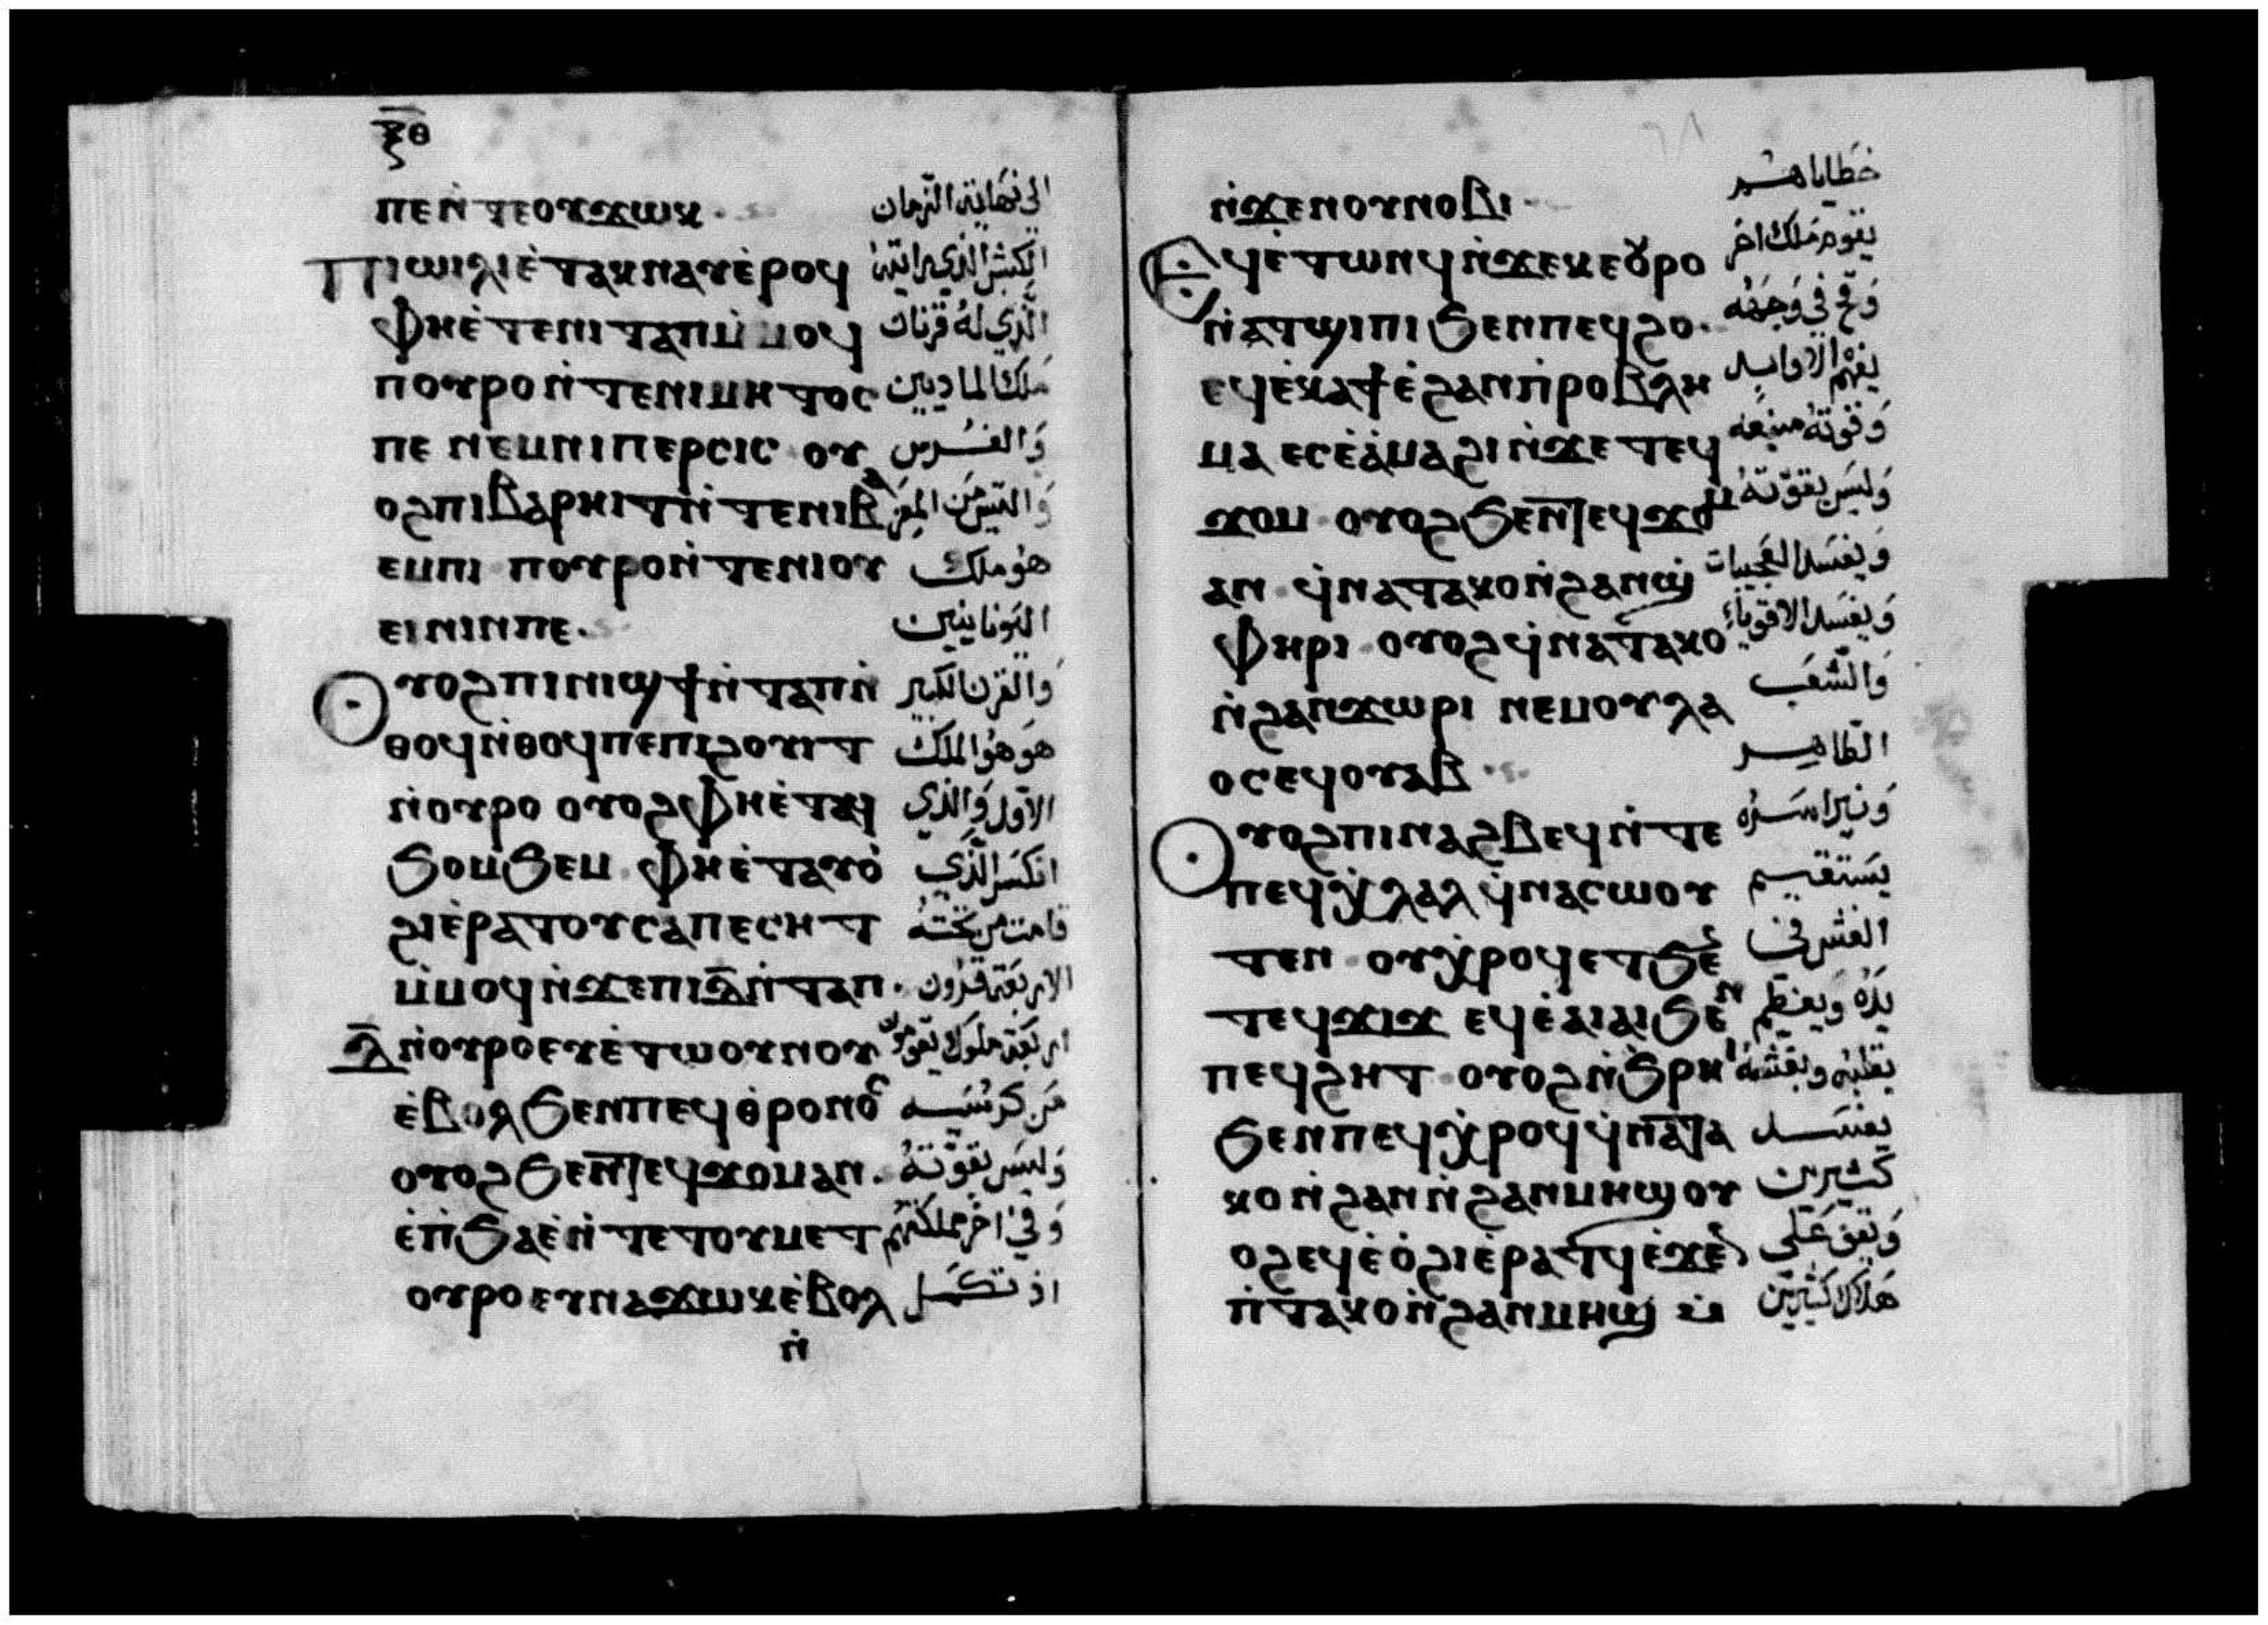 ⲝ̅ⲑ̅
ⲡⲉⲛ̀ⲧⲉⲟⲩϫⲱⲕ الى نهاية الزمان
ⲡⲓⲱⲓⲗⲓⲉ̀ⲧⲁⲕⲛⲁⲩⲉ̀ⲣⲟϥ الكبش الذي رايته
ⲫⲏⲉ̀ⲧⲉⲛⲓⲧⲁⲡⲙ̀ⲙⲟϥ الَّذي لهُ قرنان
ⲡⲟⲩⲣⲟⲛ̀ⲧⲉⲛⲓⲙⲏⲧⲟⲥ ملك الماديين
ⲡⲉ ⲛⲉⲙⲛⲓⲡⲉⲣⲥⲓⲥ ⲟⲩ وَالفُرس
ⲟϩⲡⲓⲃⲁⲣⲏⲓⲧⲛ̀ⲧⲉⲛⲓⲃⲁ وَالتيس مَن المِعَز
ⲉⲙⲡⲓ ⲡⲟⲩⲣⲟⲛ̀ⲧⲉⲛⲓⲟⲩ هوُ ملك
ⲉⲓⲛⲓⲛⲡⲉ. اليَونانيين
ⲟⲩⲟϩⲡⲓⲛⲓϣϯⲛ̀ⲧⲁⲡⲛ̀ وَالقرن الكبير
ⲑⲟϥⲛ̀ⲑⲟϥⲡⲉⲡⲓϩⲟⲩⲓⲧ هوَ هوُ الملك
ⲛ̀ⲟⲩⲣⲟ ⲟⲩⲟϩⲫⲏⲉ̀ⲧⲁϥ الاوّل وَالذي
ϧⲟⲙϧⲉⲙ ⲫⲏⲉ̀ⲧⲁⲩⲟ̀ انكسَر الَّذي
ϩⲓⲉ̀ⲣⲁⲧⲟⲩⲥⲁⲡⲉⲥⲏⲧ قامت من تحته
ⲙ̀ⲙⲟϥⲛ̀ϫⲉⲡⲓⲇ̅ⲛ̀ⲧⲁⲡ. الاربعَة قرُون
ⲇ̅ⲛ̀ⲟⲩⲣⲟⲉⲩⲉ̀ⲧⲱⲟⲩⲛⲟⲩ اربَعَة ملوك يقومُون
ⲉ̀ⲃⲟⲗϧⲉⲛⲡⲉϥⲑ̀ⲣⲟⲛⲟⲥ مَن كرسُيه
ⲟⲩⲟϩϧⲉⲛⲧⲉϥϫⲟⲙⲁⲛ. وَليسَ بقوَّتهُ
ⲉ̀ⲡ̀ϧⲁⲉ̀ⲛ̀ⲧⲉⲧⲟⲩⲙⲉⲧ وَفي اخر مملكتهُم
ⲟⲩⲣⲟⲉⲩⲛⲁϫⲱⲕⲉ̀ⲃⲟⲗ اذ تكمَل
ⲛ̀
ⲛ̀ϫⲉⲛⲟⲩⲛⲟⲃⲓ خطاياهم
ⲉϥⲉ̀ⲧⲱⲛϥⲛ̀ϫⲉⲕⲉⲟⲩⲣⲟ يقوم مَلك اخر
ⲛ̀ⲁⲧϣⲓⲡⲓϧⲉⲛⲡⲉϥϩⲟ. وَقح في وَجهُه
ⲉϥⲉ̀ⲕⲁϯⲉ̀ϩⲁⲛⲡ̀ⲣⲟⲃⲗⲏ يفهم
ⲙⲁ ⲉⲥⲉ̀ⲁ̀ⲙⲁϩⲓⲛ̀ϫⲉⲧⲉϥ وَقوتهُ منيعه
ϫⲟⲙ ⲟⲩⲟϩϧⲉⲛⲧⲉϥϫⲟⲙ وَليسَ بقوّتهُ
ⲁⲛ ϥ̀ⲛⲁⲧⲁⲕⲟⲛ̀ϩⲁⲛϣ̀ وَيفسَد العَجيبات
ⲫⲏⲣⲓ ⲟⲩⲟϩϥ̀ⲛⲁⲧⲁⲕⲟ وَيفسَد الاقوياء
ⲛ̀ϩⲁⲛϫⲱⲣⲓ ⲛⲉⲙⲟⲩⲗⲁ وَالشَّعَب
ⲟⲥⲉϥⲟⲩⲁⲃ الطاهر
ⲟⲩⲟϩⲡⲓⲛⲁϩⲃⲉϥⲛ̀ⲧⲉ
ⲡⲉϥⲭ̀ⲗⲁⲗ ϥ̀ⲛⲁⲥⲱⲟⲩ يستقيم
ⲧⲉⲛ ⲟⲩⲭ̀ⲣⲟϥⲉⲧϧⲉ الغش في
ⲧⲉϥϫⲓϫ ⲉϥⲉ̀ⲁⲓⲁⲓϧⲉⲛ يَده وَيعظم
ⲡⲉϥϩⲏⲧ ⲟⲩⲟϩⲛ̀ϧⲣⲏⲓ بقلبه وبغشه
ϧⲉⲛⲡⲉϥⲭ̀ⲣⲟϥϥ̀ⲛⲁⲧⲁ يفسد
ⲕⲟⲛ̀ϩⲁⲛⲛ̀ϩⲁⲛⲙⲏϣⲟⲩ كثيرين
ⲟϩⲉϥⲉ̀ⲟ̀ϩⲓⲉ̀ⲣⲁⲧϥⲉ̀ϫⲉⲛ وَيقف عَلى
ⲡ̀ⲧⲁⲕⲟⲛ̀ϩⲁⲛⲙⲏϣ هَلاك كثيرين